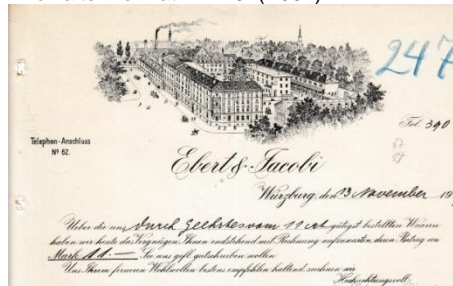 247
Tel. 390
Telephon-Anschluss
Nº 62.
Ebert & Jacobi
Würzburg, den 13 November 19
Ueber die uns durch Geehrtes vom 11 crt gütigst bestellten Waaren
haben wir heute das Vergnügen Ihnen endstehend mit Rechnung aufzuwarten, deren Betrag von
Mark Sie uns gefl. gutschreiben wollen.
Uns Ihrem ferneren Wohlwollen bestens empfohlen haltend, zeichnen wir
Hochachtungsvoll,